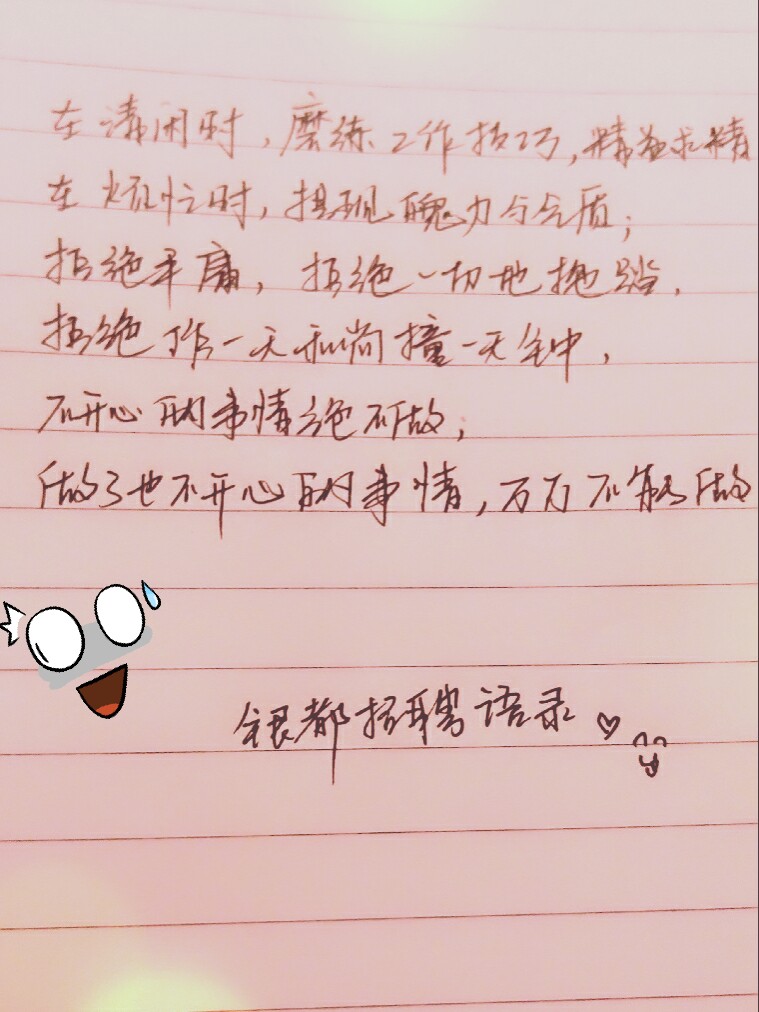 在清闲时，磨练工作技巧，精益求精
在烦忙时，提现魄力与气质；
拒绝平庸，拒绝一切地拖踏，
拒绝作一天和尚撞一天钟，
不开心的事情绝不做；
做了也不开心的事情，万万不能做
银都招聘语录